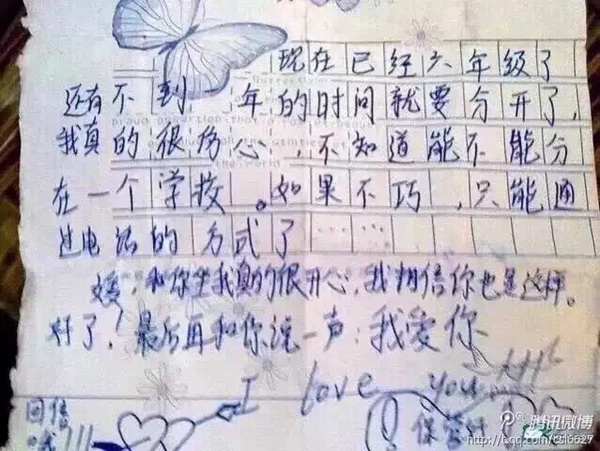 现在已经六年级了
还有不到一年的时间就要分开了,
我真的很伤心,不知道能不能分
在一个学校。如果不巧,只能通
过电话的方式了……
媛,和你坐我真的很开心,我相信你也是这样。
好了!最后再和你说一声:我爱你
I love you
回信
哦!!!
保管好
腾讯微博